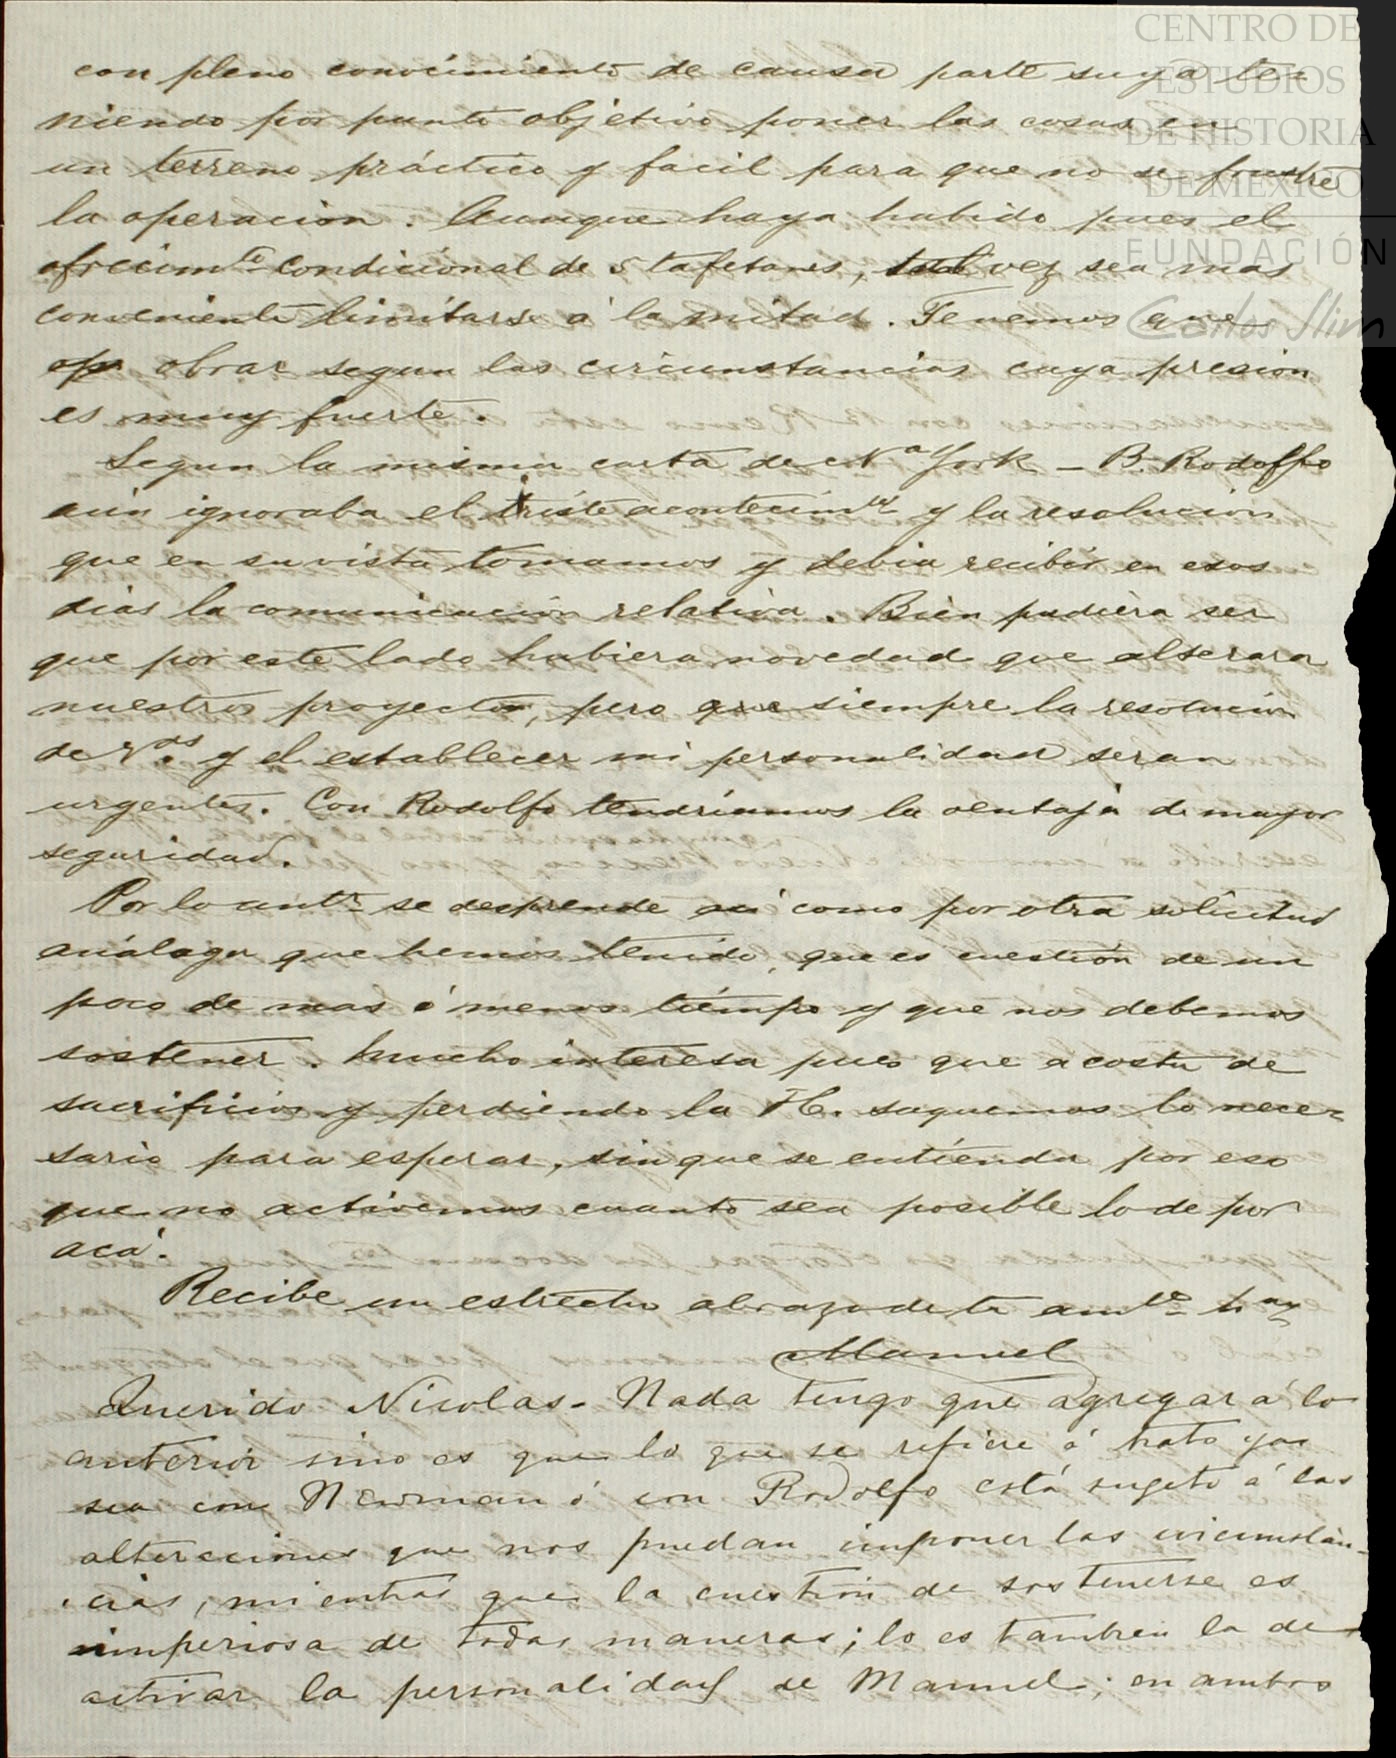 CENTRO DE
ESTUDIOS
DE HISTORIA
DE MÉXICO
FUNDACIÓN
Carlos Slim
con pleno conocimiento de causa parte suya te-
niendo por punto objetivo poner las cosas en
un terreno práctico y facil para que no se frustre
la operacion. Aunque haya habido pues el
ofrecimto condicional de 5 tafetanes, tal vez sea mas
conveniente limitarse á la mitad. Tenemos que
obrar segun las circunstancias cuya presion
es muy fuerte.
Segun la misma carta de Na York - B. Rodolfo
aún ignoraba el triste acontecimto y la resolucion
que en su vista tomamos y debia recibir en esos
dias la comunicación relativa. Bien pudiera ser
que por este lado hubiera novedad que alterara
nuestros proyectos, pero que siempre la resolucion
de Vds. y el establecer mi personalidad seran
urgentes. Con Rodolfo tendríamos la ventaja de mayor
seguridad.
Por lo antr. se desprende asi como por otra solicitud
análoga que hemos tenido, que es cuestión de un
poco de mas ó menos tiempo y que nos debemos
sostener. Mucho interesa pues que a costa de
sacrificios y perdiendo la H. saquemos lo nece-
sario para esperar, sin que se entienda por eso
que no activemos cuanto sea posible lo de por
acá.
Recibe un estrecho abrazo de tu amte
Manuel
Querido Nicolas - Nada tengo que agregar á lo
anterior sino es que lo que se refiere á trato ya
sea con Newman ó con Rodolfo está sugeto á las
alteraciones que nos puedan imponer las circunstan-
cias, mientras que la cuestión de sostenerse es
imperiosa de todas maneras; lo es tambien la de
activar la personalidad de Manuel; en ambos